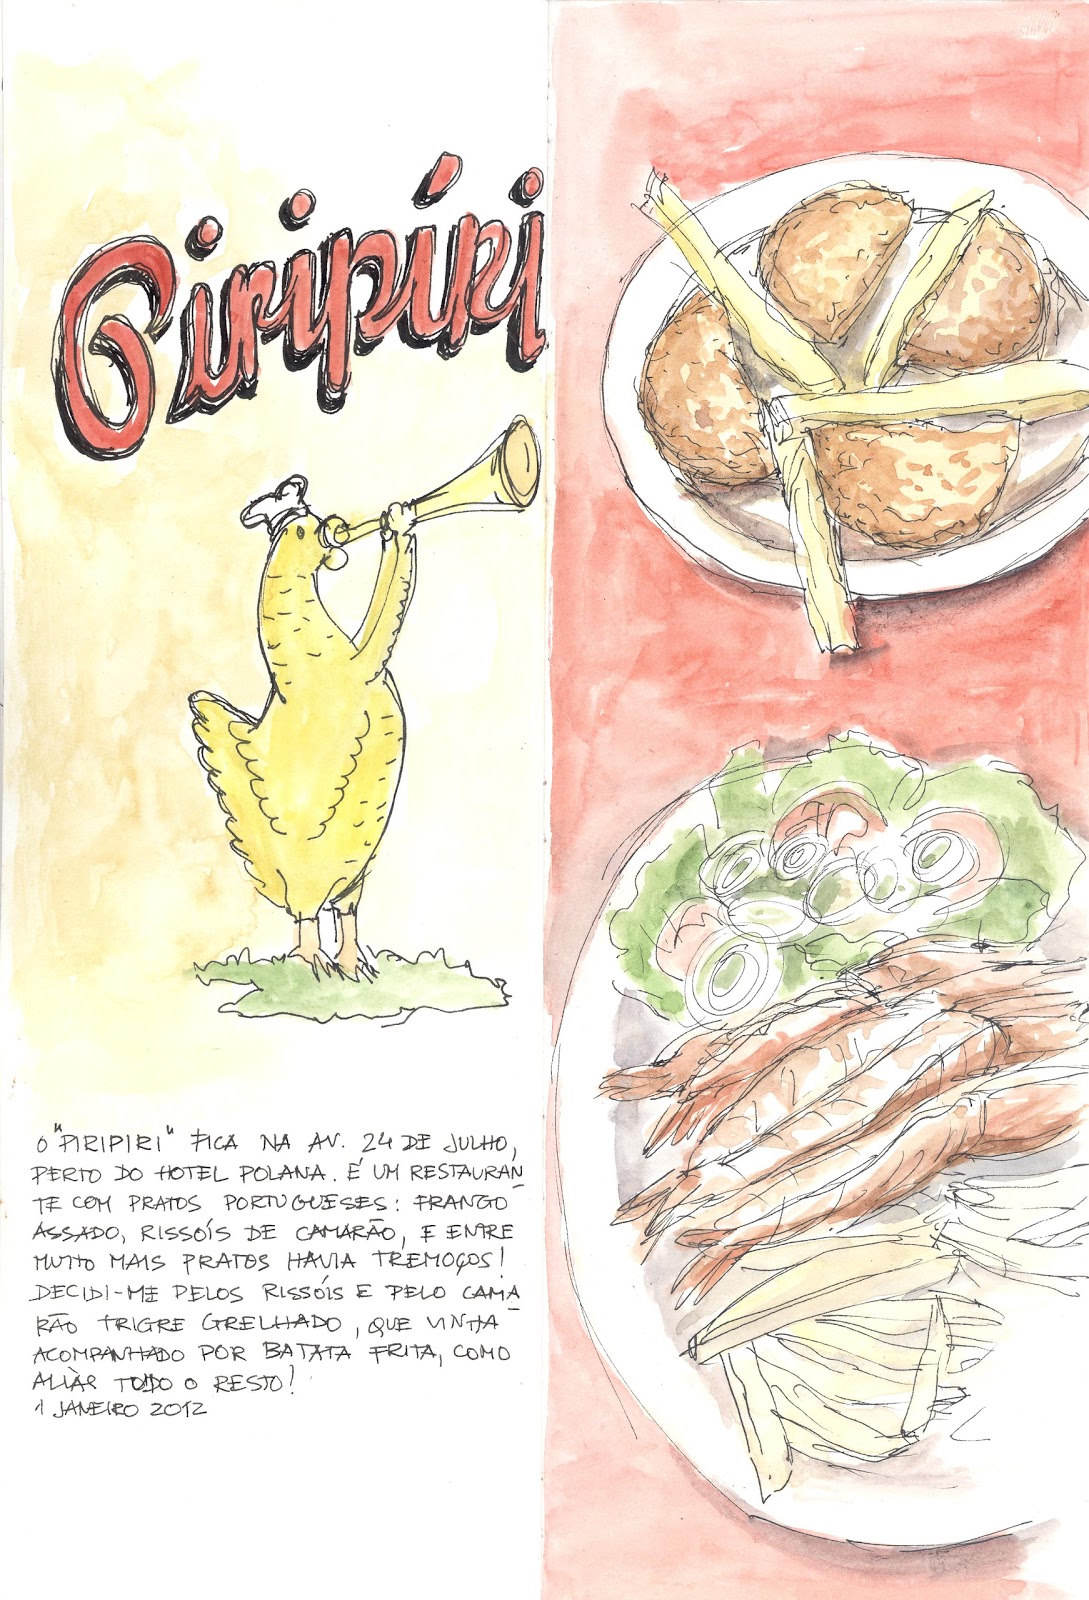 Piripíri
O "PIRIPIRI" FICA NA AV. 24 DE JULHO,
PERTO DO HOTEL POLANA. É UM RESTAURAN
TE COM PRATOS PORTUGUESES: FRANGO
ASSADO, RISSÓIS DE CAMARÃO, E ENTRE
MUITO MAIS PRATOS HAVIA TREMOÇOS!
DECIDI-ME PELOS RISSÓIS E PELO CAMA
RÃO TRIGRE GRELHADO, QUE VINHA
ACOMPANHADO POR BATATA FRITA, COMO
ALIÀS TODO O RESTO!
1 JANEIRO 2012